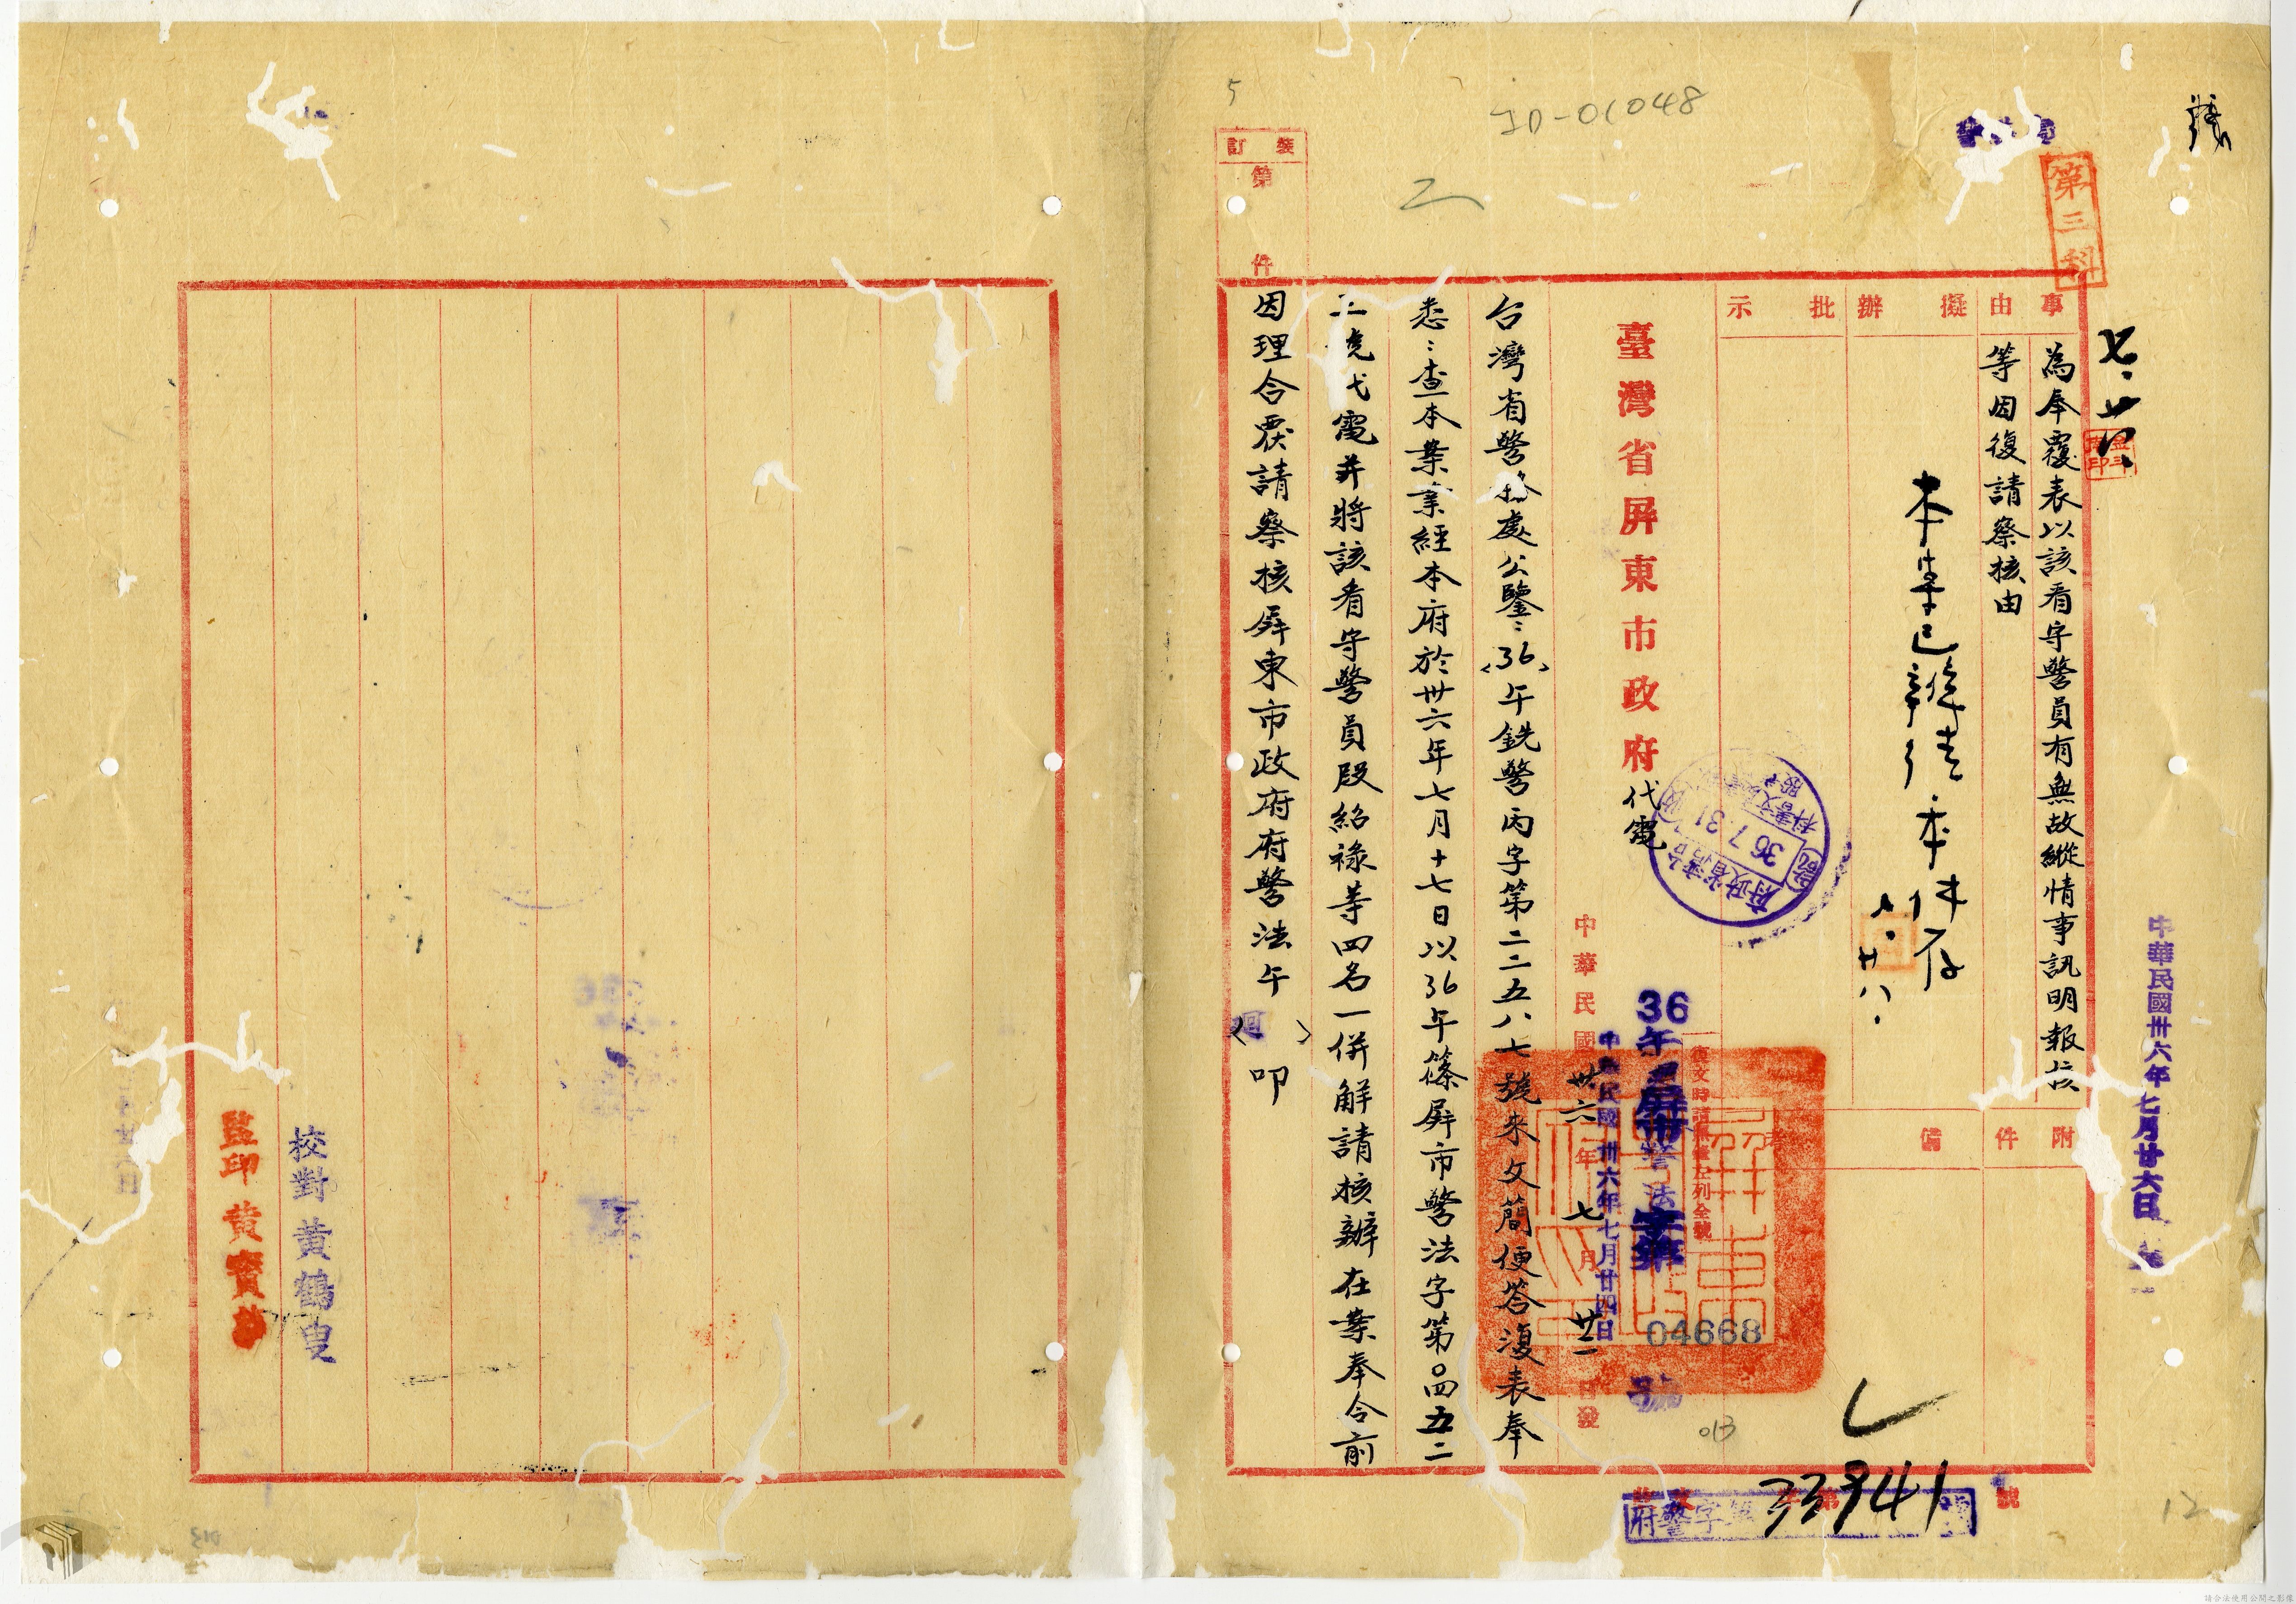 5
JD-01048
裝訂
第
件
第三科
七.廿八
中華民國卅六年七月廿六日
事由
為奉覆表以該看守警員有無故縱情事訊明報核
等因復請察核由
擬辦
本案已辦結本件存
八.廿八.
批示
附件
備
臺灣省屏東市政府代電
36 7.31
中華民國卅六年七月廿二日發
復文時請照左列全號
36午
屏市警法字第
04668
號
中華民國卅六年七月廿四日
台灣省警務處公鑒：〈36〉午銑警丙字第二二五八七號來文簡便答復表奉
悉：查本案業經本府於卅六年七月十七日以36午篠屏市警法字第0四五二
二號代電并將該看守警員段紹祿等四名一併解請核辦在案奉令前
因理合覆請察核屏東市政府府警法午〈迴〉叩
校對黃鶴叟
監印黃寶
府警字第33941號
013
12
請合法使用公開之影像